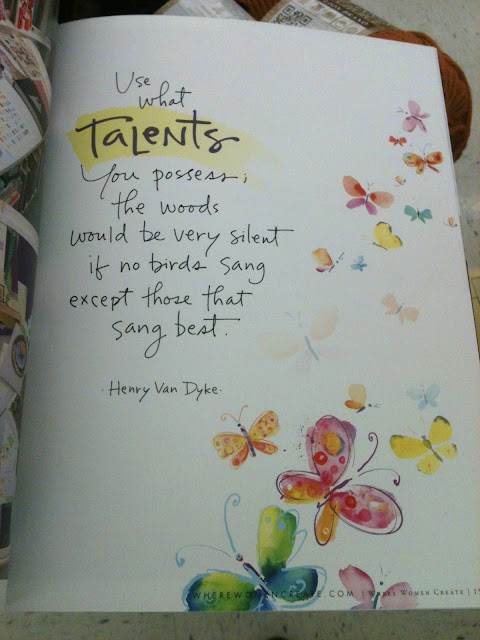 Use
what
TaLENTs
You possess;
the woods
would be very silent
if no birds sang
except those that
sang best.
·Henry Van Dyke·
WHEREWOMENCREATE.COM | WHERE WOMEN CREATE |